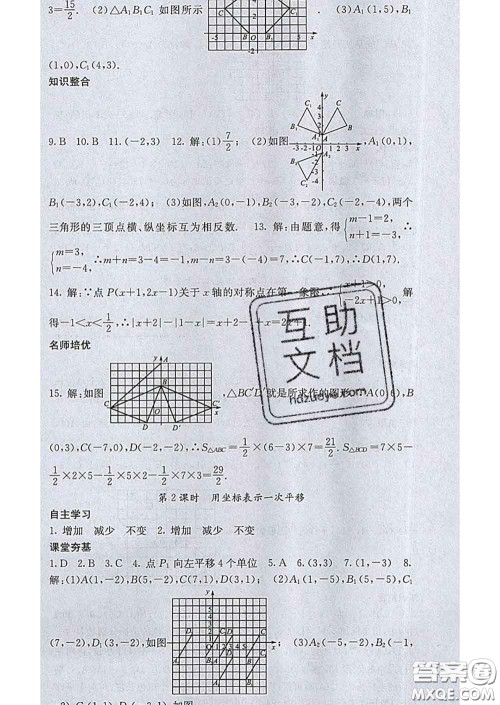 3=15/2. (2)△A₁B₁C₁ 如图所示 . (3)A₁(1,5),B₁
(1,0),C₁(4,3).
知识整合
9.B 10.B 11.(-2,3) 12.解:(1)7/2; (2)如图 ,A₁(0,1),
B₁(-3,2),C₁(-2,4); (3)如图,A₂(0,-1),B₂(-3,-2),C₂(-2,-4),两个
三角形的三顶点横、纵坐标互为相反数. 13.解:由题意,得{m-1=2, n+1=-3,
∴{m=3, n=-4, ∴m+n=3-4=-1,m-n=3+4=7,∴C(-1,7),∴D(1,7).
14.解:∵点 P(x+1,2x-1)关于 x 轴的对称点在第 x+1>0, -2x+1>0, 解
得-1<x<1/2,∴|x+2|-|1-x|=x+2
名师培优
15.解:如图 ,△BC′D′就是所求作的图形 A(0,6),B
(0,3),C(-7,0),D(-2,-2),∴S△ABC=1/2×(6-3)×7=21/2.S△BCD=5×7-
1/2×2×5-1/2×5×2-1/2×7×3=29/2.
第2课时 用坐标表示一次平移
自主学习
1.增加 减少 不变 2.增加 减少 不变
课堂夯基
1.D 2.B 3.C 4.点 P₁ 向左平移4个单位 5.A 6.(3,3) 7.(1,-3) 8.
解:(1)A(1,-2),B(5,-2),C(7,1),D(3,1); (2)A₁(1,-5),B₁(5,-5),C₁
(7,-2),D₁(3,-2),如图 ; (3)A₂(-5,-2),B₂(-1,
互助
文档
hdzuoye.com
答案圈
MXQE.COM